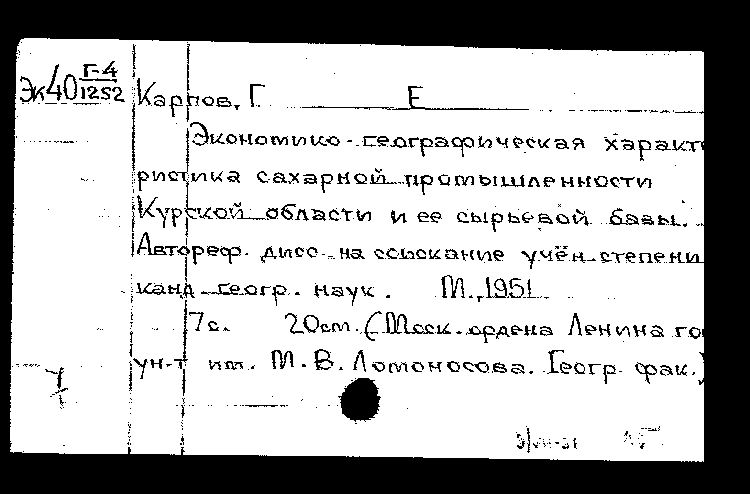 Эк40 Г-4/1252
Карпов, Г Е
Экономико-географическая характе
ристика сахарной промышленности
Курской области и ее сырьевой базы.
Автореф. дисс. на ссыскание учён степени
канд геогр. наук. М., 1951
7с. 20см. (Моск. ордена Ленина го
ун-т им. М.В. Ломоносова. Геогр. фак.)